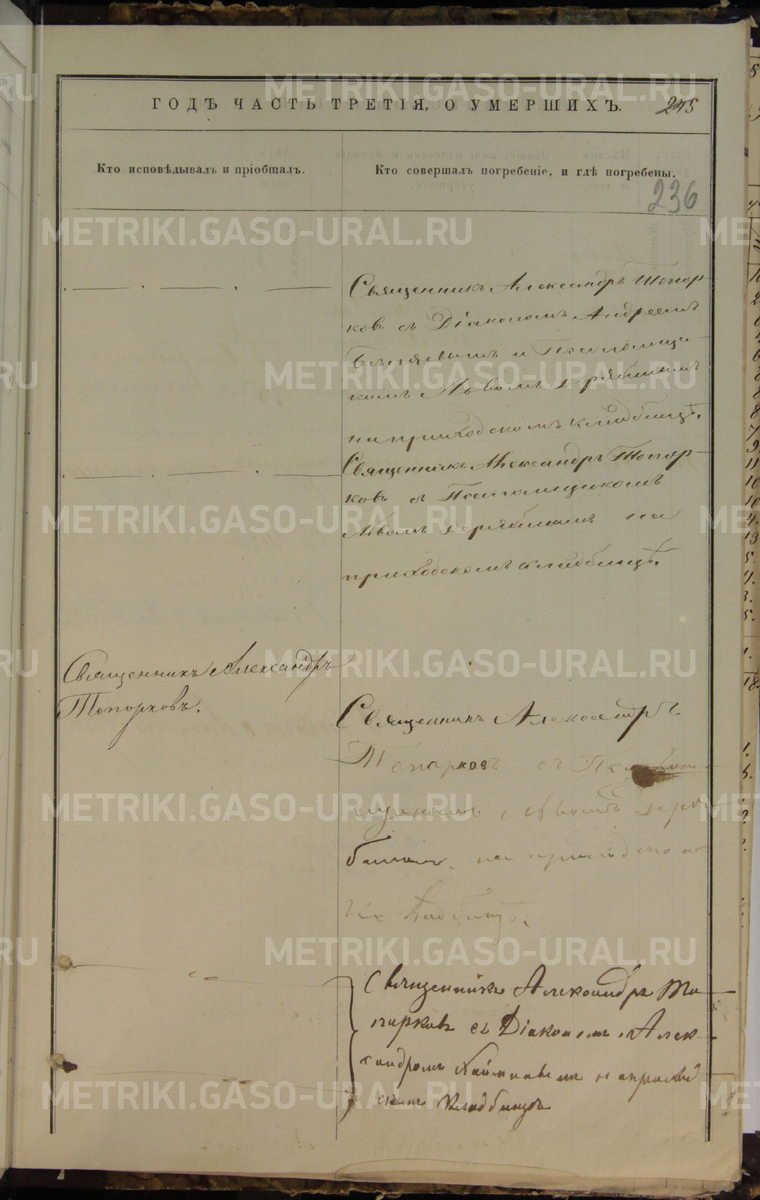 ГОДЪ ЧАСТЬ ТРЕТІЯ, О УМЕРШИХЪ. 245
Кто исповѣдывалъ и пріобщалъ.
Кто совершалъ погребеніе, и гдѣ погребены.
236
Священникъ Александръ Топор-
ковъ съ Діакономъ Андреемъ
и Псаломщи-
комъ Львомъ
на приходскомъ кладбищѣ.
Священникъ Александръ Топор-
ковъ съ Псаломщикомъ
Львомъ на
приходскомъ кладбищѣ.
Священникъ Александръ
Топорковъ.
Священникъ Александръ
Топарковъ съ
Львомъ
на
кладбищѣ.
Священникъ Александръ То-
парковъ съ Діакономъ Алек-
сандромъ на приход
скомъ кладбищѣ
METRIKI.GASO-URAL.RU